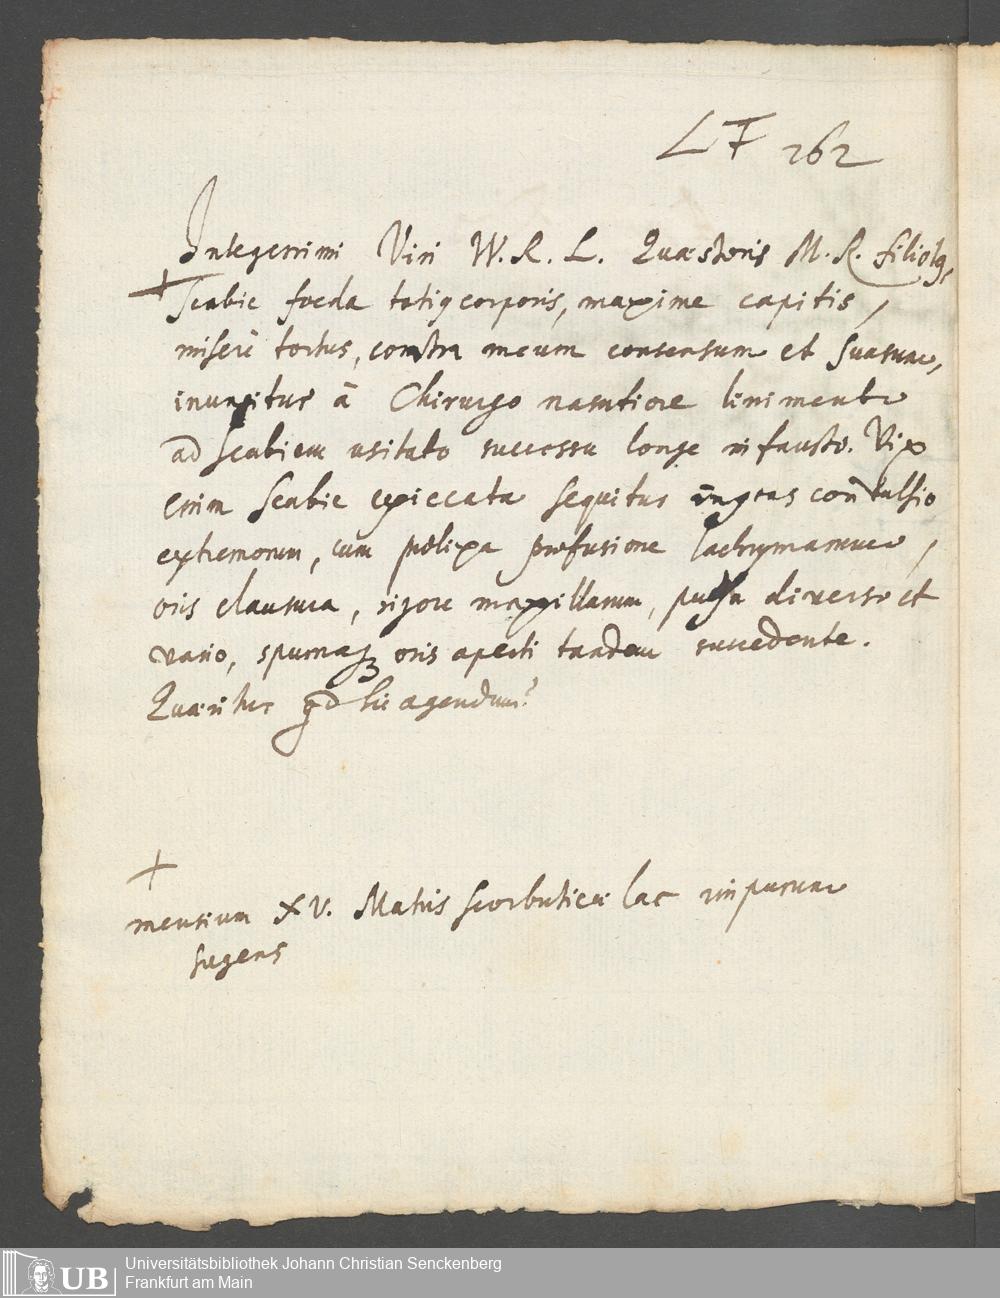 LF 262
Integerrimi Viri W. R. L. Quæstoris M. R. filiolq,
+ Scabie foeda totiq corporis, maxime capitis,
miserè tortus, contra meum consensum et suasum,
inungitur â Chirurgo nasutiore linimento
ad scabiem usitato successu longe infausto. Vix
enim scabie exiccata sequitur ingens convulsio
extremorum, cum prolixa profusione lachrymarum,
oris clausura, rigore maxillarum, pulsu diverso et
vario, spumaqȝ oris aperti tandem succedente.
Quæritur qd hic agendum?
+
mensium XV. Matris scorbuticæ lac impurum
sugens
UB Universitätsbibliothek Johann Christian Senckenberg
Frankfurt am Main